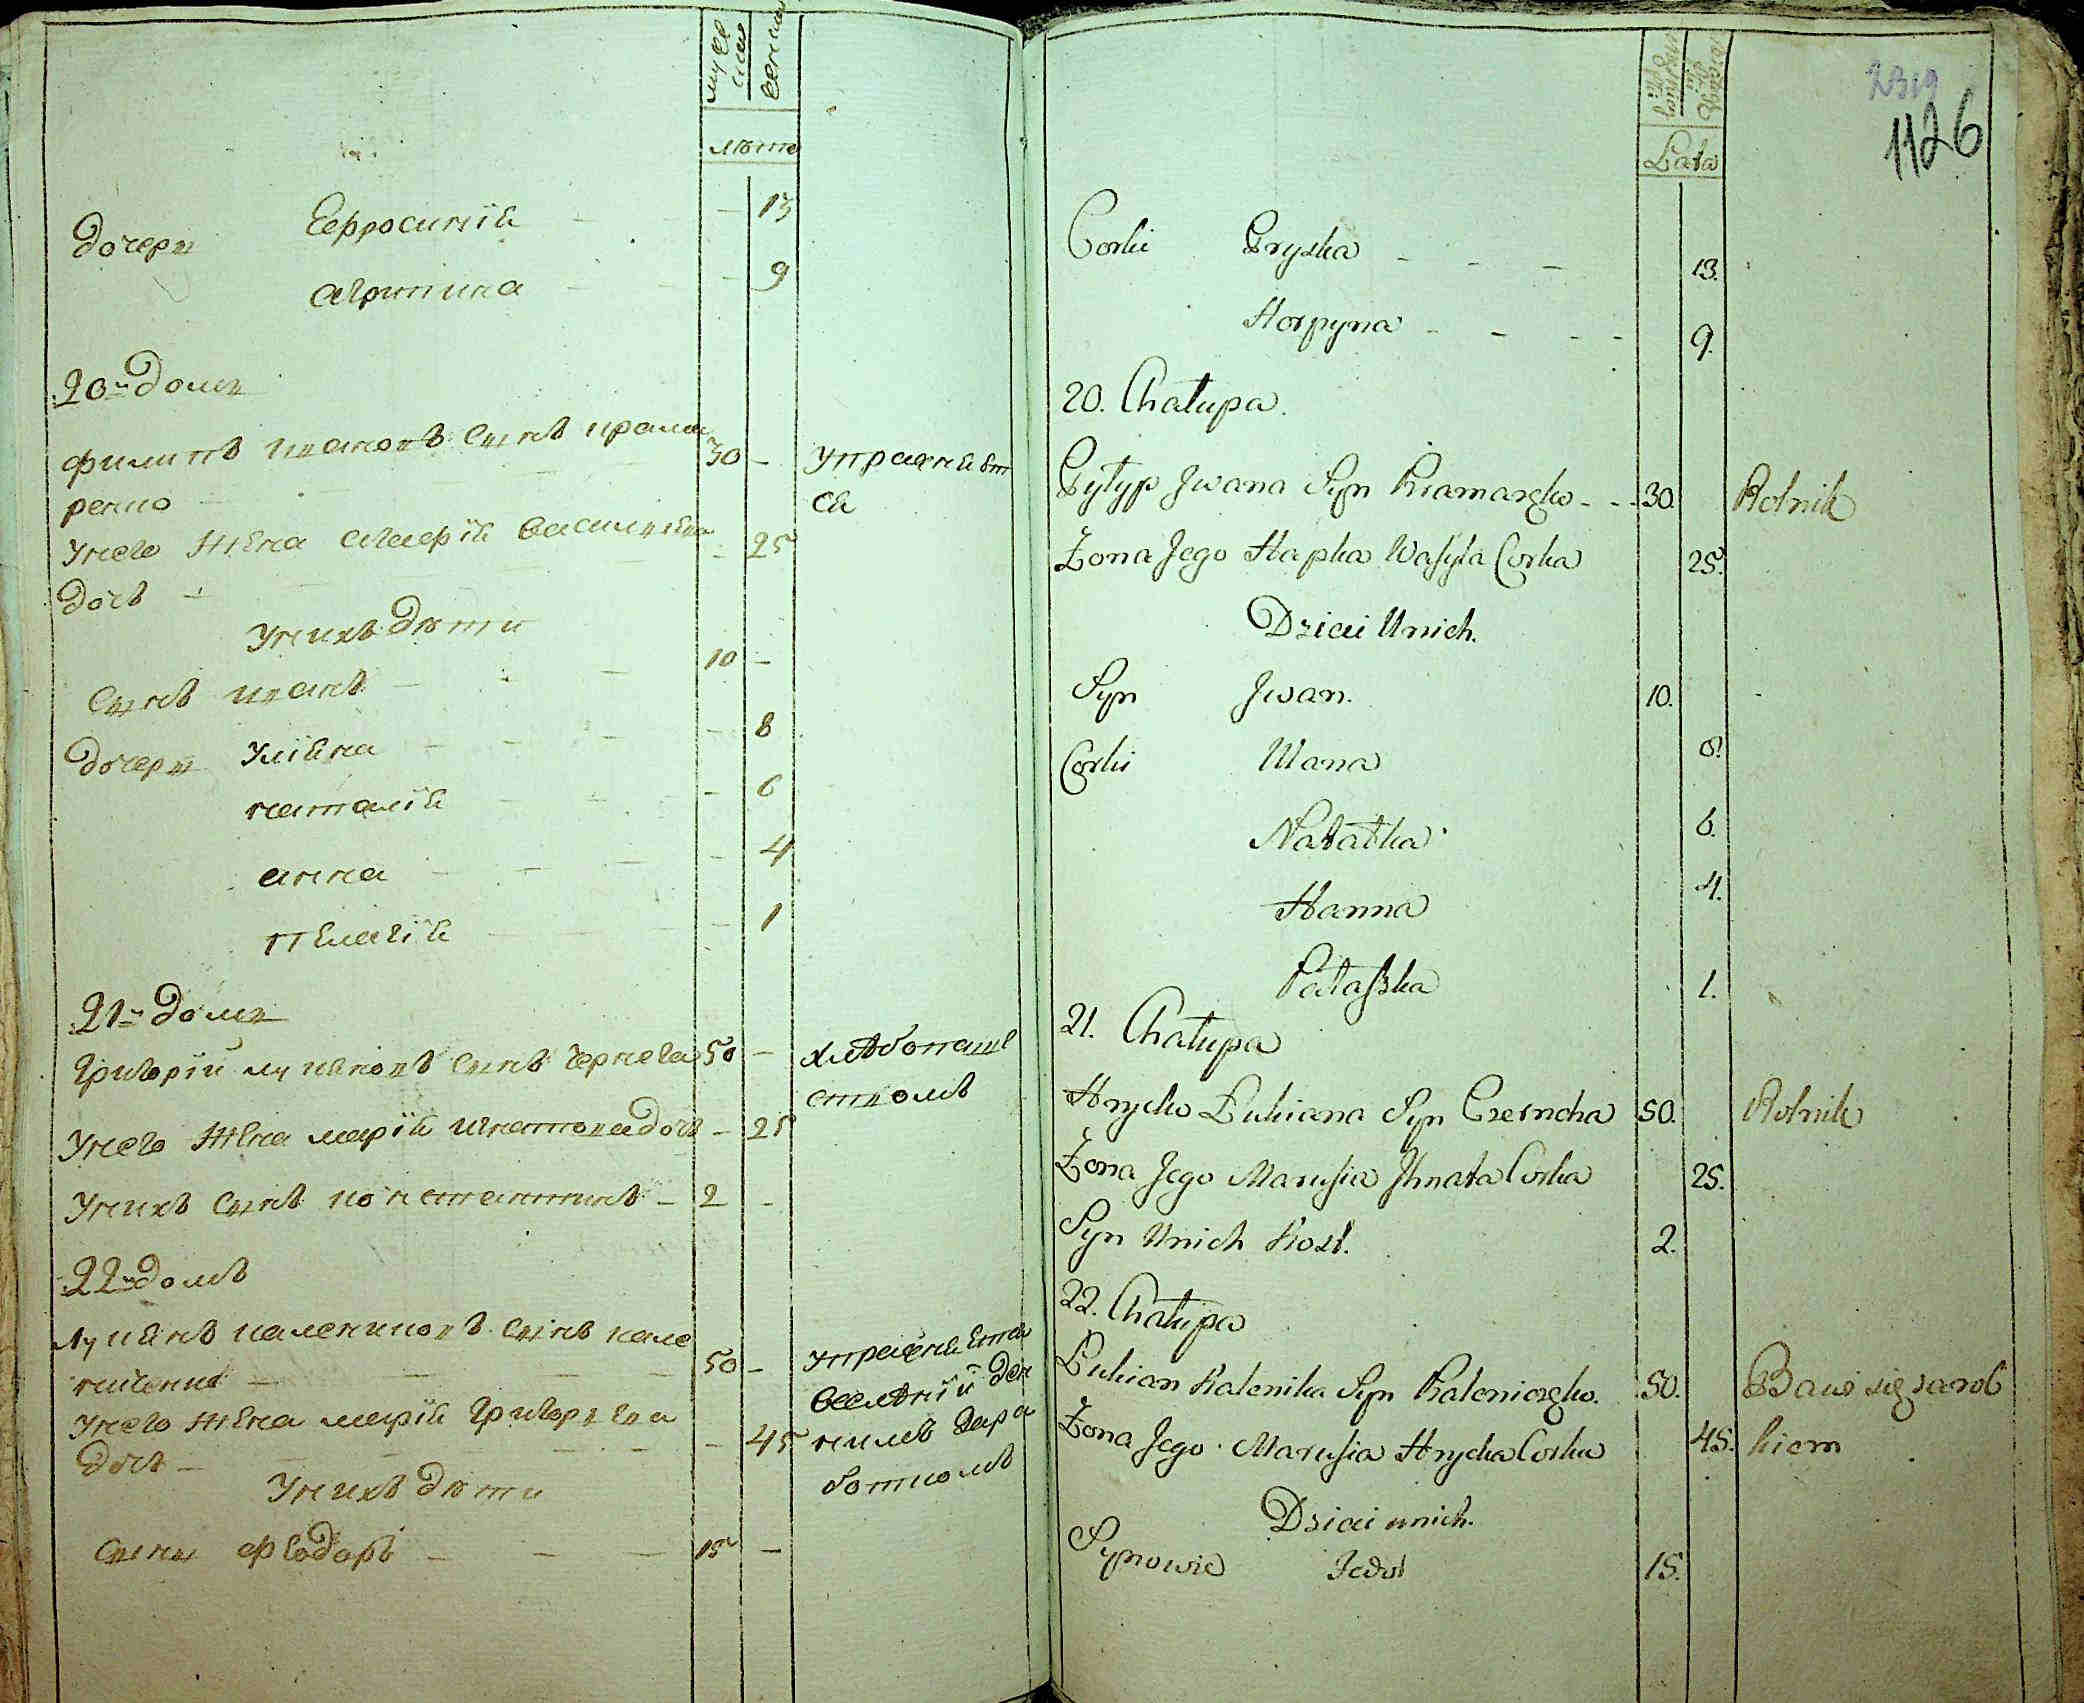 мужес
кой
женской
лѣта
дочери Евфросинія — — 13
агрипина — — 9
20й домъ
филипъ ивановъ сынъ крама 30 — упражняет
ренко — ся
Унего жена агафія василиева — 25
дочъ —
Унихъ дѣти
Сынъ иванъ — — 10 —
дочери Уліяна — — — 8
наталія — — — 6
анна — — — 4
пелагія — — — 1
21й домъ
Григорій лукяновъ сынъ Чернега 50 — хлѣбопаше
ством
Унего жена марія игнатова дочъ — 25
Унихъ сынъ константинъ — 2 —
22й домъ
Лукянъ калениковъ сынъ кале
ниченко — — — 50 — упражняется
вседнѣ
Унего жена марія григориева
дочъ — — — 45
Унихъ дѣти
Сыны феодоръ — — — 15 —
2319
1126
Lata
Corki Pryska — — — 13.
Horpyna — — — 9.
20. Chałupa.
Pyłyp Jwana Syn Kramarzko — — 30. Rolnik
Żona Jego Hapka Wasyla Corka 25.
Dzieci Unich.
Syn Jwan. 10.
Corki Ulana 8.
Natałka 6.
Hanna 4.
Pałaszka 1.
21. Chałupa
Hryćko Łukiana Syn Czerneha 50. Rolnik
Żona Jego Marusia Jhnata Corka 25.
Syn Unich Kost. 2.
22. Chałupa
Łukian Kalenika Syn Kaleniczko. 50. Bawi się zarob
Żona Jego Marusia Hryćka Corka 45. kiem
Dzieci unich.
Synowie Fedor 15.